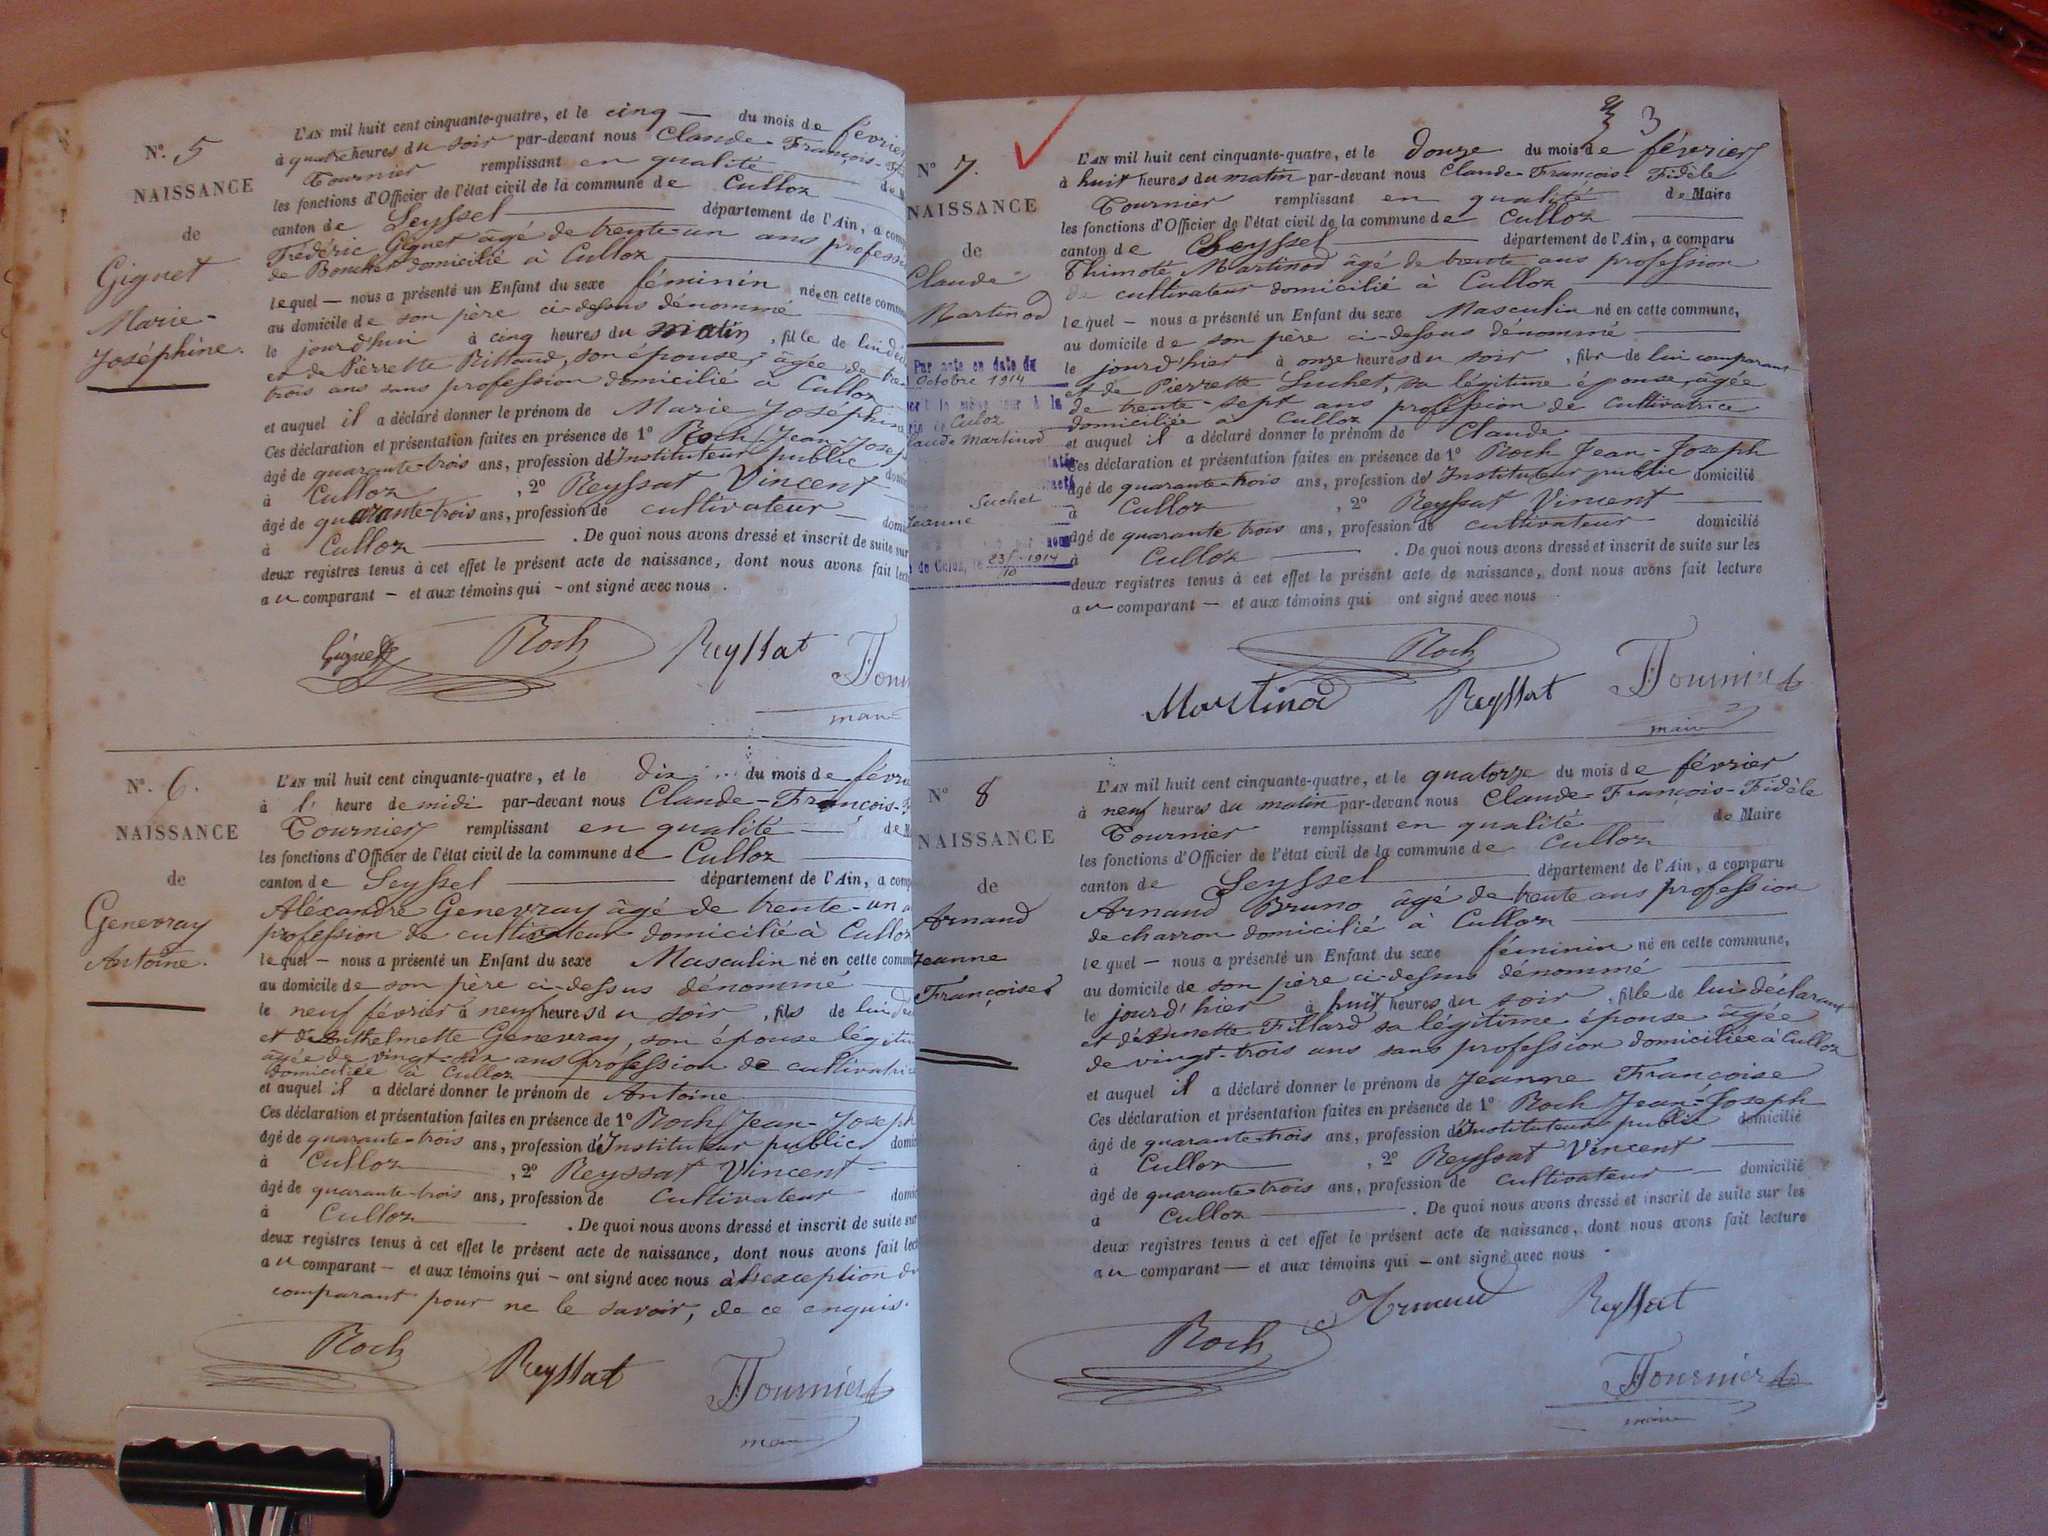 N° 5
NAISSANCE
de
Gignet
Marie-
Joséphine.
L'AN mil huit cent cinquante-quatre, et le cinq — du mois de février
à quatre heures du soir par-devant nous Claude-François-
Tournier remplissant en qualité — de
les fonctions d'Officier de l'état civil de la commune de Culloz
canton de Seyssel — département de l'Ain, a comp
Frédéric Gignet âgé de trente-un ans professi
de Boucher domicilié à Culloz
lequel — nous a présenté un Enfant du sexe féminin née en cette commu
au domicile de son père ci-dessus dénommé
le jourd'hui à cinq heures du matin, fille de lui dé
et de Pierrette Rittaud, son épouse, âgée de tre
trois ans sans profession domicilié à Culloz
et auquel il a déclaré donner le prénom de Marie Joséphine
Ces déclaration et présentation faites en présence de 1° Roch Jean-Josep
âgé de quarante-trois ans, profession d'Instituteur public domi
à Culloz, 2° Reyssat Vincent —
âgé de quarante-trois ans, profession de cultivateur — domi
à Culloz — . De quoi nous avons dressé et inscrit de suite sur
deux registres tenus à cet effet le présent acte de naissance, dont nous avons fait lect
au comparant — et aux témoins qui — ont signé avec nous .
Gignet Roch Reyssat Tourn
maire
N°. 6.
NAISSANCE
de
Genevray
Antoine.
L'AN mil huit cent cinquante-quatre, et le dix du mois de févri
à l' heure de midi par-devant nous Claude-François-
Tournier remplissant en qualité — de M
les fonctions d'Officier de l'état civil de la commune de Culloz
canton de Seyssel — département de l'Ain, a comp
Aléxandre Genevray âgé de trente-un a
profession de cultivateur domicilié à Culloz
lequel — nous a présenté un Enfant du sexe Masculin né en cette commu
au domicile de son père ci-dessus dénommé
le neuf février à neuf heures du soir, fils de lui dé
et de Anthelmette Genevray, son épouse légiti
âgée de vingt-six ans profession de cultivatrice
domiciliée à Culloz
et auquel il a déclaré donner le prénom de Antoine
Ces déclaration et présentation faites en présence de 1° Roch Jean-Joseph
âgé de quarante-trois ans, profession d'Instituteur public domi
à Culloz, 2° Reyssat Vincent —
âgé de quarante-trois ans, profession de Cultivateur domi
à Culloz — . De quoi nous avons dressé et inscrit de suite sur
deux registres tenus à cet effet le présent acte de naissance, dont nous avons fait lect
au comparant — et aux témoins qui — ont signé avec nous à l'exception du
comparant pour ne le savoir, de ce enquis.
Roch Reyssat Tournier
maire
3
N° 7.
NAISSANCE
de
Claude
Martinod
Par acte en date du
Octobre 1914
le même jour à la
Culoz
Claude Martinod
Suchet
Jeanne
par nous
de Culoz, le 23/10 1914
L'AN mil huit cent cinquante-quatre, et le douze du mois de février
à huit heures du matin par-devant nous Claude-François-Fidèle
Tournier remplissant en qualité de Maire
les fonctions d'Officier de l'état civil de la commune de Culloz
canton de Seyssel — département de l'Ain, a comparu
Thimoté Martinod âgé de trente ans profession
de cultivateur domicilié à Culloz
lequel — nous a présenté un Enfant du sexe Masculin né en cette commune,
au domicile de son père ci-dessus dénommé
le jourd'hier à onze heures du soir, fils de lui comparant
et de Pierrette Suchet, sa légitime épouse, âgée
de trente-sept ans profession de cultivatrice
domiciliée à Culloz
et auquel il a déclaré donner le prénom de Claude
Ces déclaration et présentation faites en présence de 1° Roch Jean-Joseph
âgé de quarante-trois ans, profession d'Instituteur public domicilié
à Culloz, 2° Reyssat Vincent —
âgé de quarante trois ans, profession de cultivateur domicilié
à Culloz — . De quoi nous avons dressé et inscrit de suite sur les
deux registres tenus à cet effet le présent acte de naissance, dont nous avons fait lecture
au comparant — et aux témoins qui ont signé avec nous
Roch
Martinod Reyssat Tournier
maire
N° 8
NAISSANCE
de
Arnaud
Jeanne
Françoise
L'AN mil huit cent cinquante-quatre, et le quatorze du mois de février
à neuf heures du matin par-devant nous Claude-François-Fidèle
Tournier remplissant en qualité de Maire
les fonctions d'Officier de l'état civil de la commune de Culloz
canton de Seyssel — département de l'Ain, a comparu
Arnaud Bruno âgé de trente ans profession
de charron domicilié à Culloz
lequel — nous a présenté un Enfant du sexe féminin né en cette commune,
au domicile de son père ci-dessus dénommé
le jourd'hier à huit heures du soir, fille de lui déclarant
et de Annette Fillard sa légitime épouse âgée
de vingt-trois ans sans profession domiciliée à Culloz
et auquel il a déclaré donner le prénom de Jeanne Françoise
Ces déclaration et présentation faites en présence de 1° Roch Jean-Joseph
âgé de quarante-trois ans, profession d'Instituteur public domicilié
à Culloz, 2° Reyssat Vincent —
âgé de quarante-trois ans, profession de cultivateur — domicilié
à Culloz — . De quoi nous avons dressé et inscrit de suite sur les
deux registres tenus à cet effet le présent acte de naissance, dont nous avons fait lecture
au comparant — et aux témoins qui — ont signé avec nous .
Arnaud Reyssat
Roch
Tournier
maire